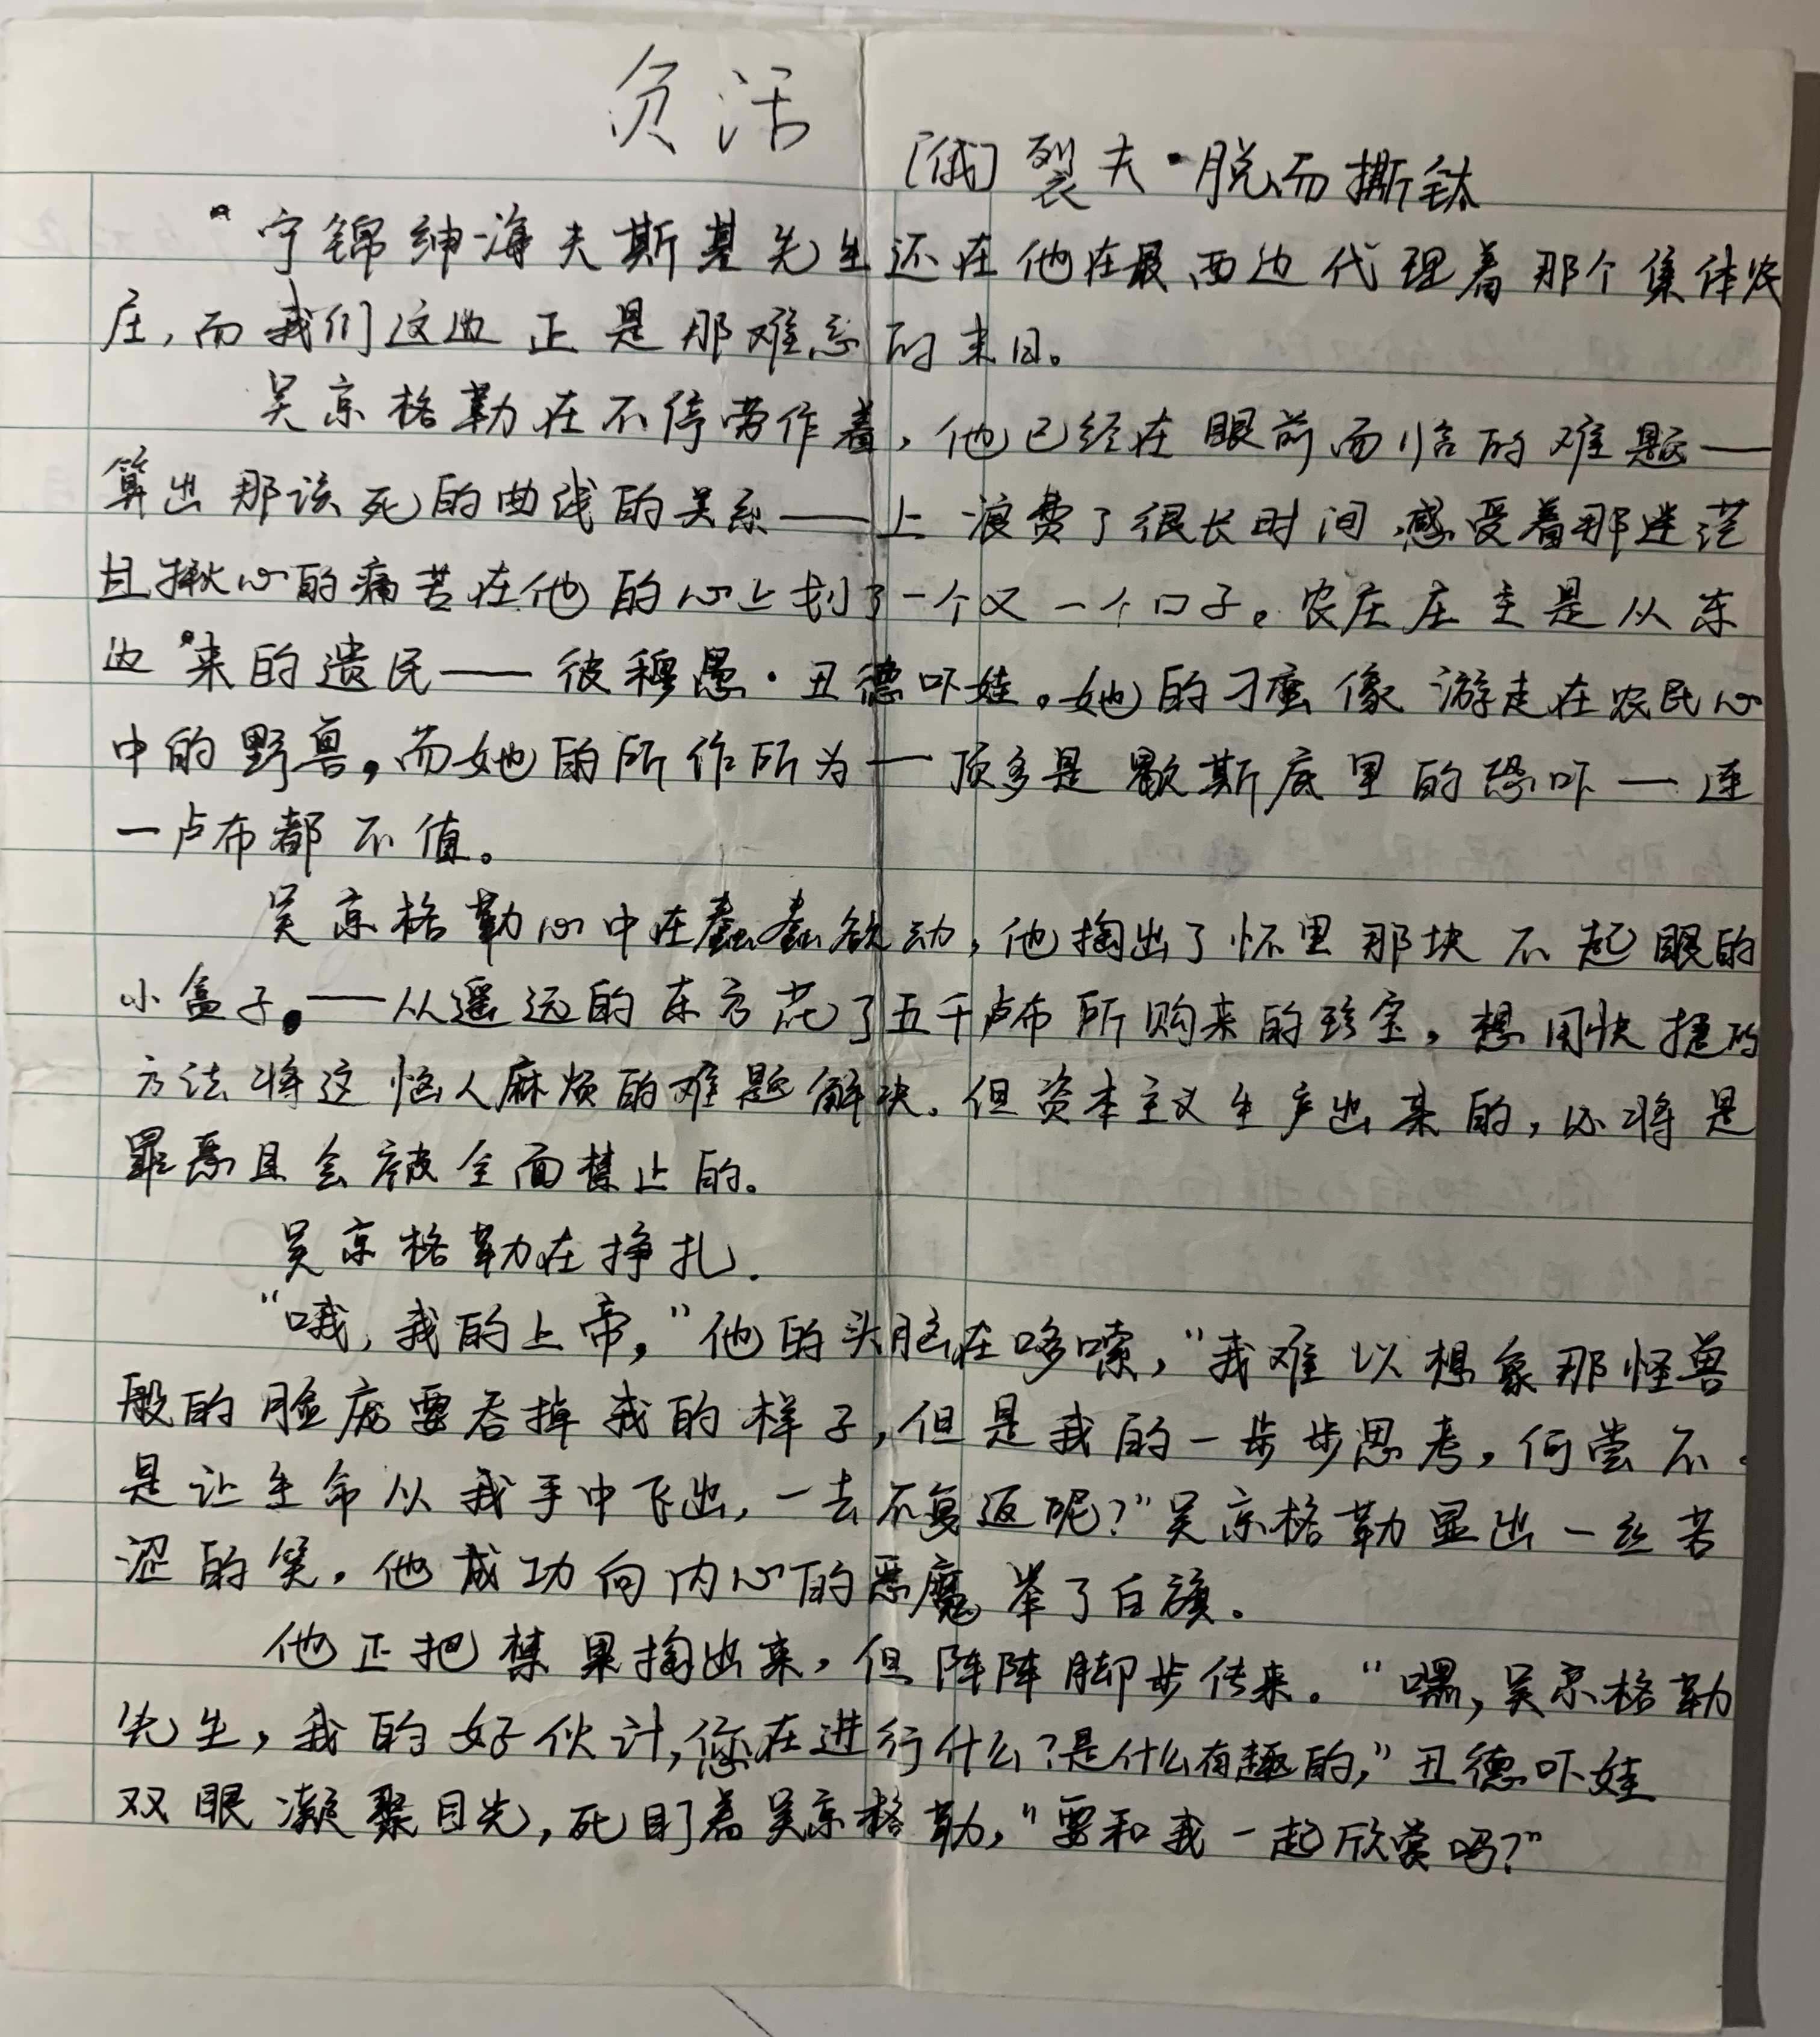 负活
[俄] 裂夫·脱而撕钛
宁锦绅海夫斯基先生还在他在最西边代理着那个集体农
庄,而我们这边正是那难忘的末日。
吴京格勒在不停劳作着,他已经在眼前面临的难题——
算出那该死的曲线的关系——上浪费了很长时间,感受着那迷茫
且揪心的痛苦在他的心上划了一个又一个口子。农庄庄主是从东
边来的遗民——彼穆愚·丑德吓娃。她的刁蛮像游走在农民心
中的野兽,而她的所作所为—顶多是歇斯底里的恐吓—连
一卢布都不值。
吴京格勒心中在蠢蠢欲动,他掏出了怀里那块不起眼的
小盒子。——从遥远的东方花了五千卢布所购来的珍宝,想用快捷的
方法将这恼人麻烦的难题解决。但资本主义生产出来的,必将是
罪恶且会被全面禁止的。
吴京格勒在挣扎.
“哦,我的上帝,”他的头脑在哆嗦,“我难以想象那怪兽
般的脸庞要吞掉我的样子,但是我的一步步思考,何尝不
是让生命从我手中飞出,一去不复返呢?”吴京格勒显出一丝苦
涩的笑。他成功向内心的恶魔举了白旗。
他正把禁果掏出来,但阵阵脚步传来。“嘿,吴京格勒
先生,我的好伙计,您在进行什么?是什么有趣的,”丑德吓娃
双眼凝聚目光,死盯着吴京格勒,“要和我一起欣赏吗?”